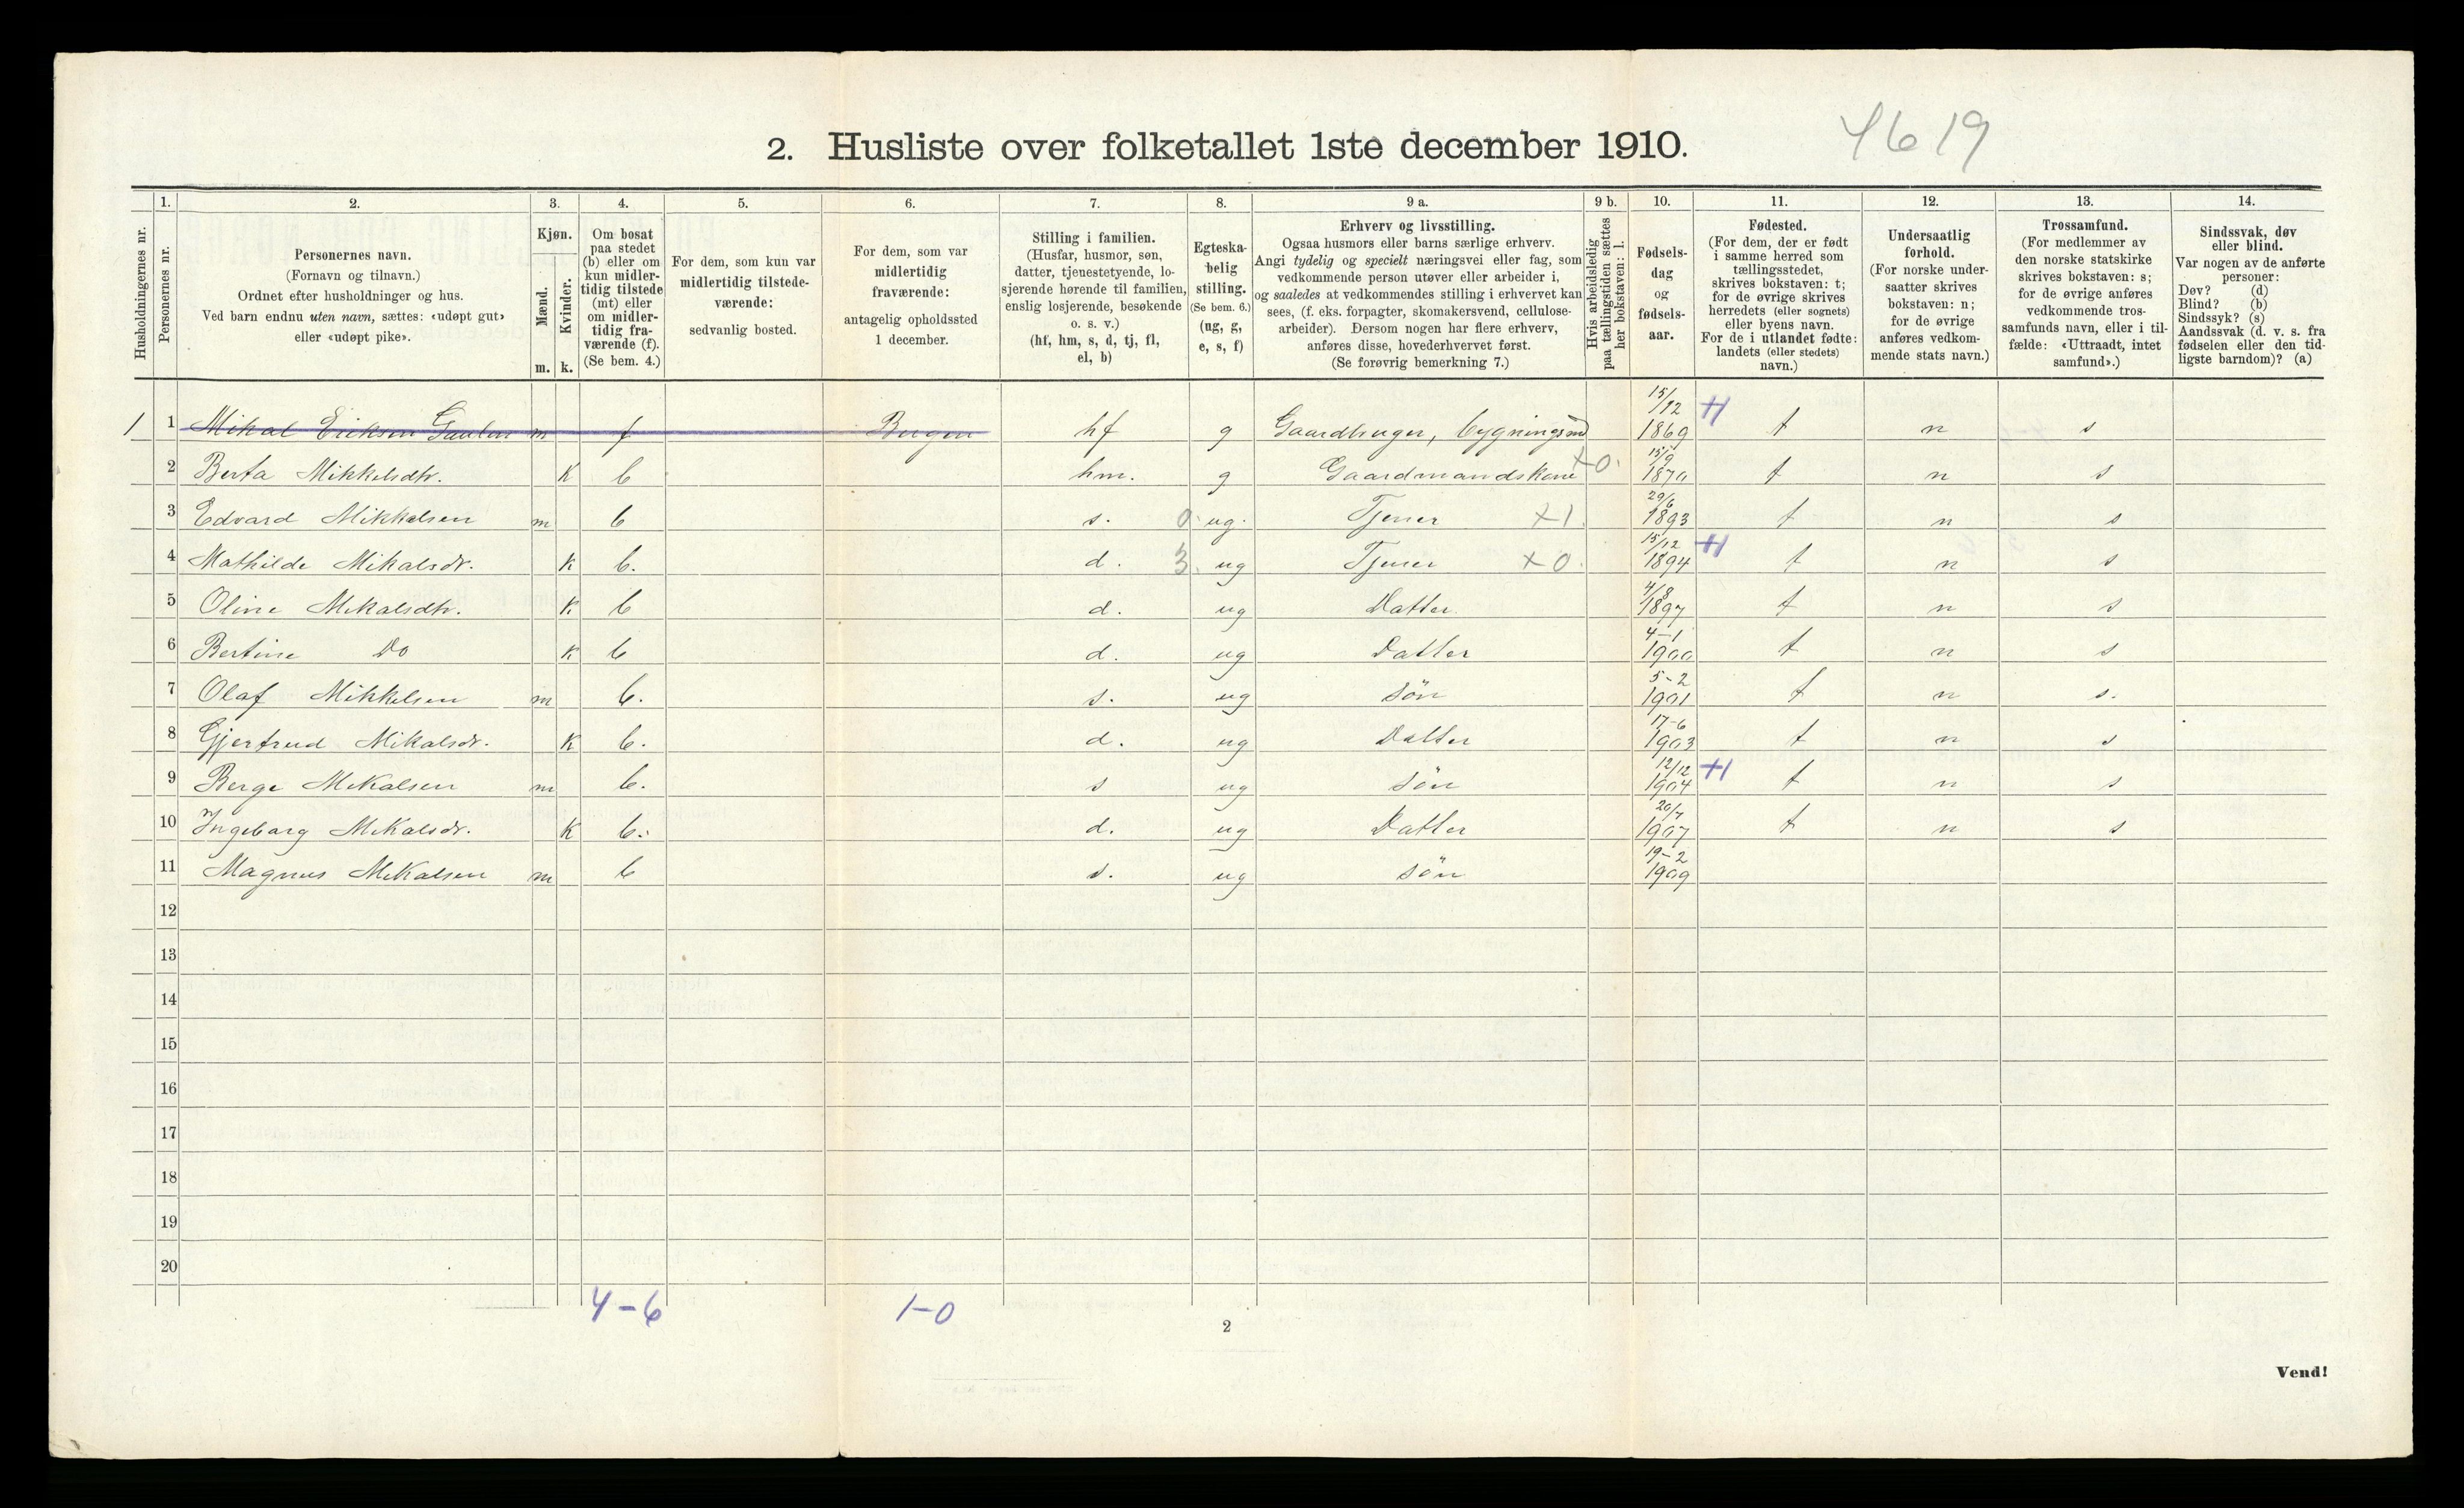 4619
2. Husliste over folketallet 1ste december 1910.
Husholdningernes nr.
1.
Personernes nr.
2.
Personernes navn.
(Fornavn og tilnavn.)
Ordnet efter husholdninger og hus.
Ved barn endnu uten navn, sættes: «udøpt gut»
eller «udøpt pike».
3.
Kjøn.
Mænd.
Kvinder.
m. k.
4.
Om bosat
paa stedet
(b) eller om
kun midler-
tidig tilstede
(mt) eller
om midler-
tidig fra-
værende (f).
(Se bem. 4.)
5.
For dem, som kun var
midlertidig tilstede-
værende:
sedvanlig bosted.
6.
For dem, som var
midlertidig
fraværende:
antagelig opholdssted
1 december.
7.
Stilling i familien.
(Husfar, husmor, søn,
datter, tjenestetyende, lo-
sjerende hørende til familien,
enslig losjerende, besøkende
o. s. v.)
(hf, hm, s, d, tj, fl,
el, b)
8.
Egteska-
belig
stilling.
(Se bem. 6.)
(ug, g,
e, s, f)
9 a.
Erhverv og livsstilling.
Ogsaa husmors eller barns særlige erhverv.
Angi tydelig og specielt næringsvei eller fag, som
vedkommende person utøver eller arbeider i,
og saaledes at vedkommendes stilling i erhvervet kan
sees, (f. eks. forpagter, skomakersvend, cellulose-
arbeider). Dersom nogen har flere erhverv,
anføres disse, hovederhvervet først.
(Se forøvrig bemerkning 7.)
9 b.
Hvis arbeidsledig
paa tællingstiden sættes
her bokstaven: l.
10.
Fødsels-
dag
og
fødsels-
aar.
11.
Fødested.
(For dem, der er født
i samme herred som
tællingsstedet,
skrives bokstaven: t;
for de øvrige skrives
herredets (eller sognets)
eller byens navn.
For de i utlandet fødte:
landets (eller stedets)
navn.)
12.
Undersaatlig
forhold.
(For norske under-
saatter skrives
bokstaven: n;
for de øvrige
anføres vedkom-
mende stats navn.)
13.
Trossamfund.
(For medlemmer av
den norske statskirke
skrives bokstaven: s;
for de øvrige anføres
vedkommende tros-
samfunds navn, eller i til-
fælde: «Uttraadt, intet
samfund».)
14.
Sindssvak, døv
eller blind.
Var nogen av de anførte
personer:
Døv? (d)
Blind? (b)
Sindssyk? (s)
Aandssvak (d. v. s. fra
fødselen eller den tid-
ligste barndom)? (a)
1 1 Mikal Eriksen m f hf g Gaardbruger, 15/12 1869 t n s
2 Berta Mikkelsdtr. K b hm. g Gaardmandskone +0. 15/9 1870 t n s
3 Edvard Mikkelsen m b s. 0. ug. Tjener +1 29/6 1893 t n s
4 Mathilde Mikalsdr. K b. d. 3. ug Tjener +0. 15/12 1894 t n s
5 Oline Mikalsdtr. K b d. ug Datter 4/8 1897 t n s
6 Bertine Do K b d. ug Datter 4-1 1900 t n s
7 Olaf Mikkelsen m b. s. ug søn 5-2 1901 t n s.
8 Gjertrud Mikalsdr. K b. d. ug Datter 17-6 1903 t n s
9 Berge Mikalsen m b. s ug søn 12/12 1904 t n s
10 Ingeborg Mikalsdr. K b. d. ug Datter 20/7 1907 t n s
11 Magnus Mikalsen m b s. ug søn 19-2 1909
12
13
14
15
16
17
18
19
20
4-6 1-0
2
Vend!